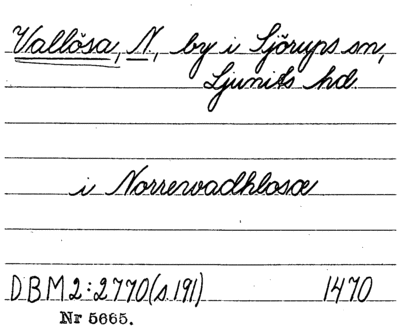 Vallösa, N., by i Sjörups sn,
Ljunits hd.
i Norrevadhlosæ
DBM 2:2770 (s 191) 1470
Nr 5665.